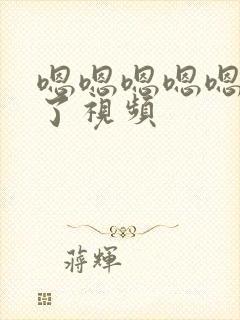 嗯嗯嗯嗯嗯
了视頻
蔣輝